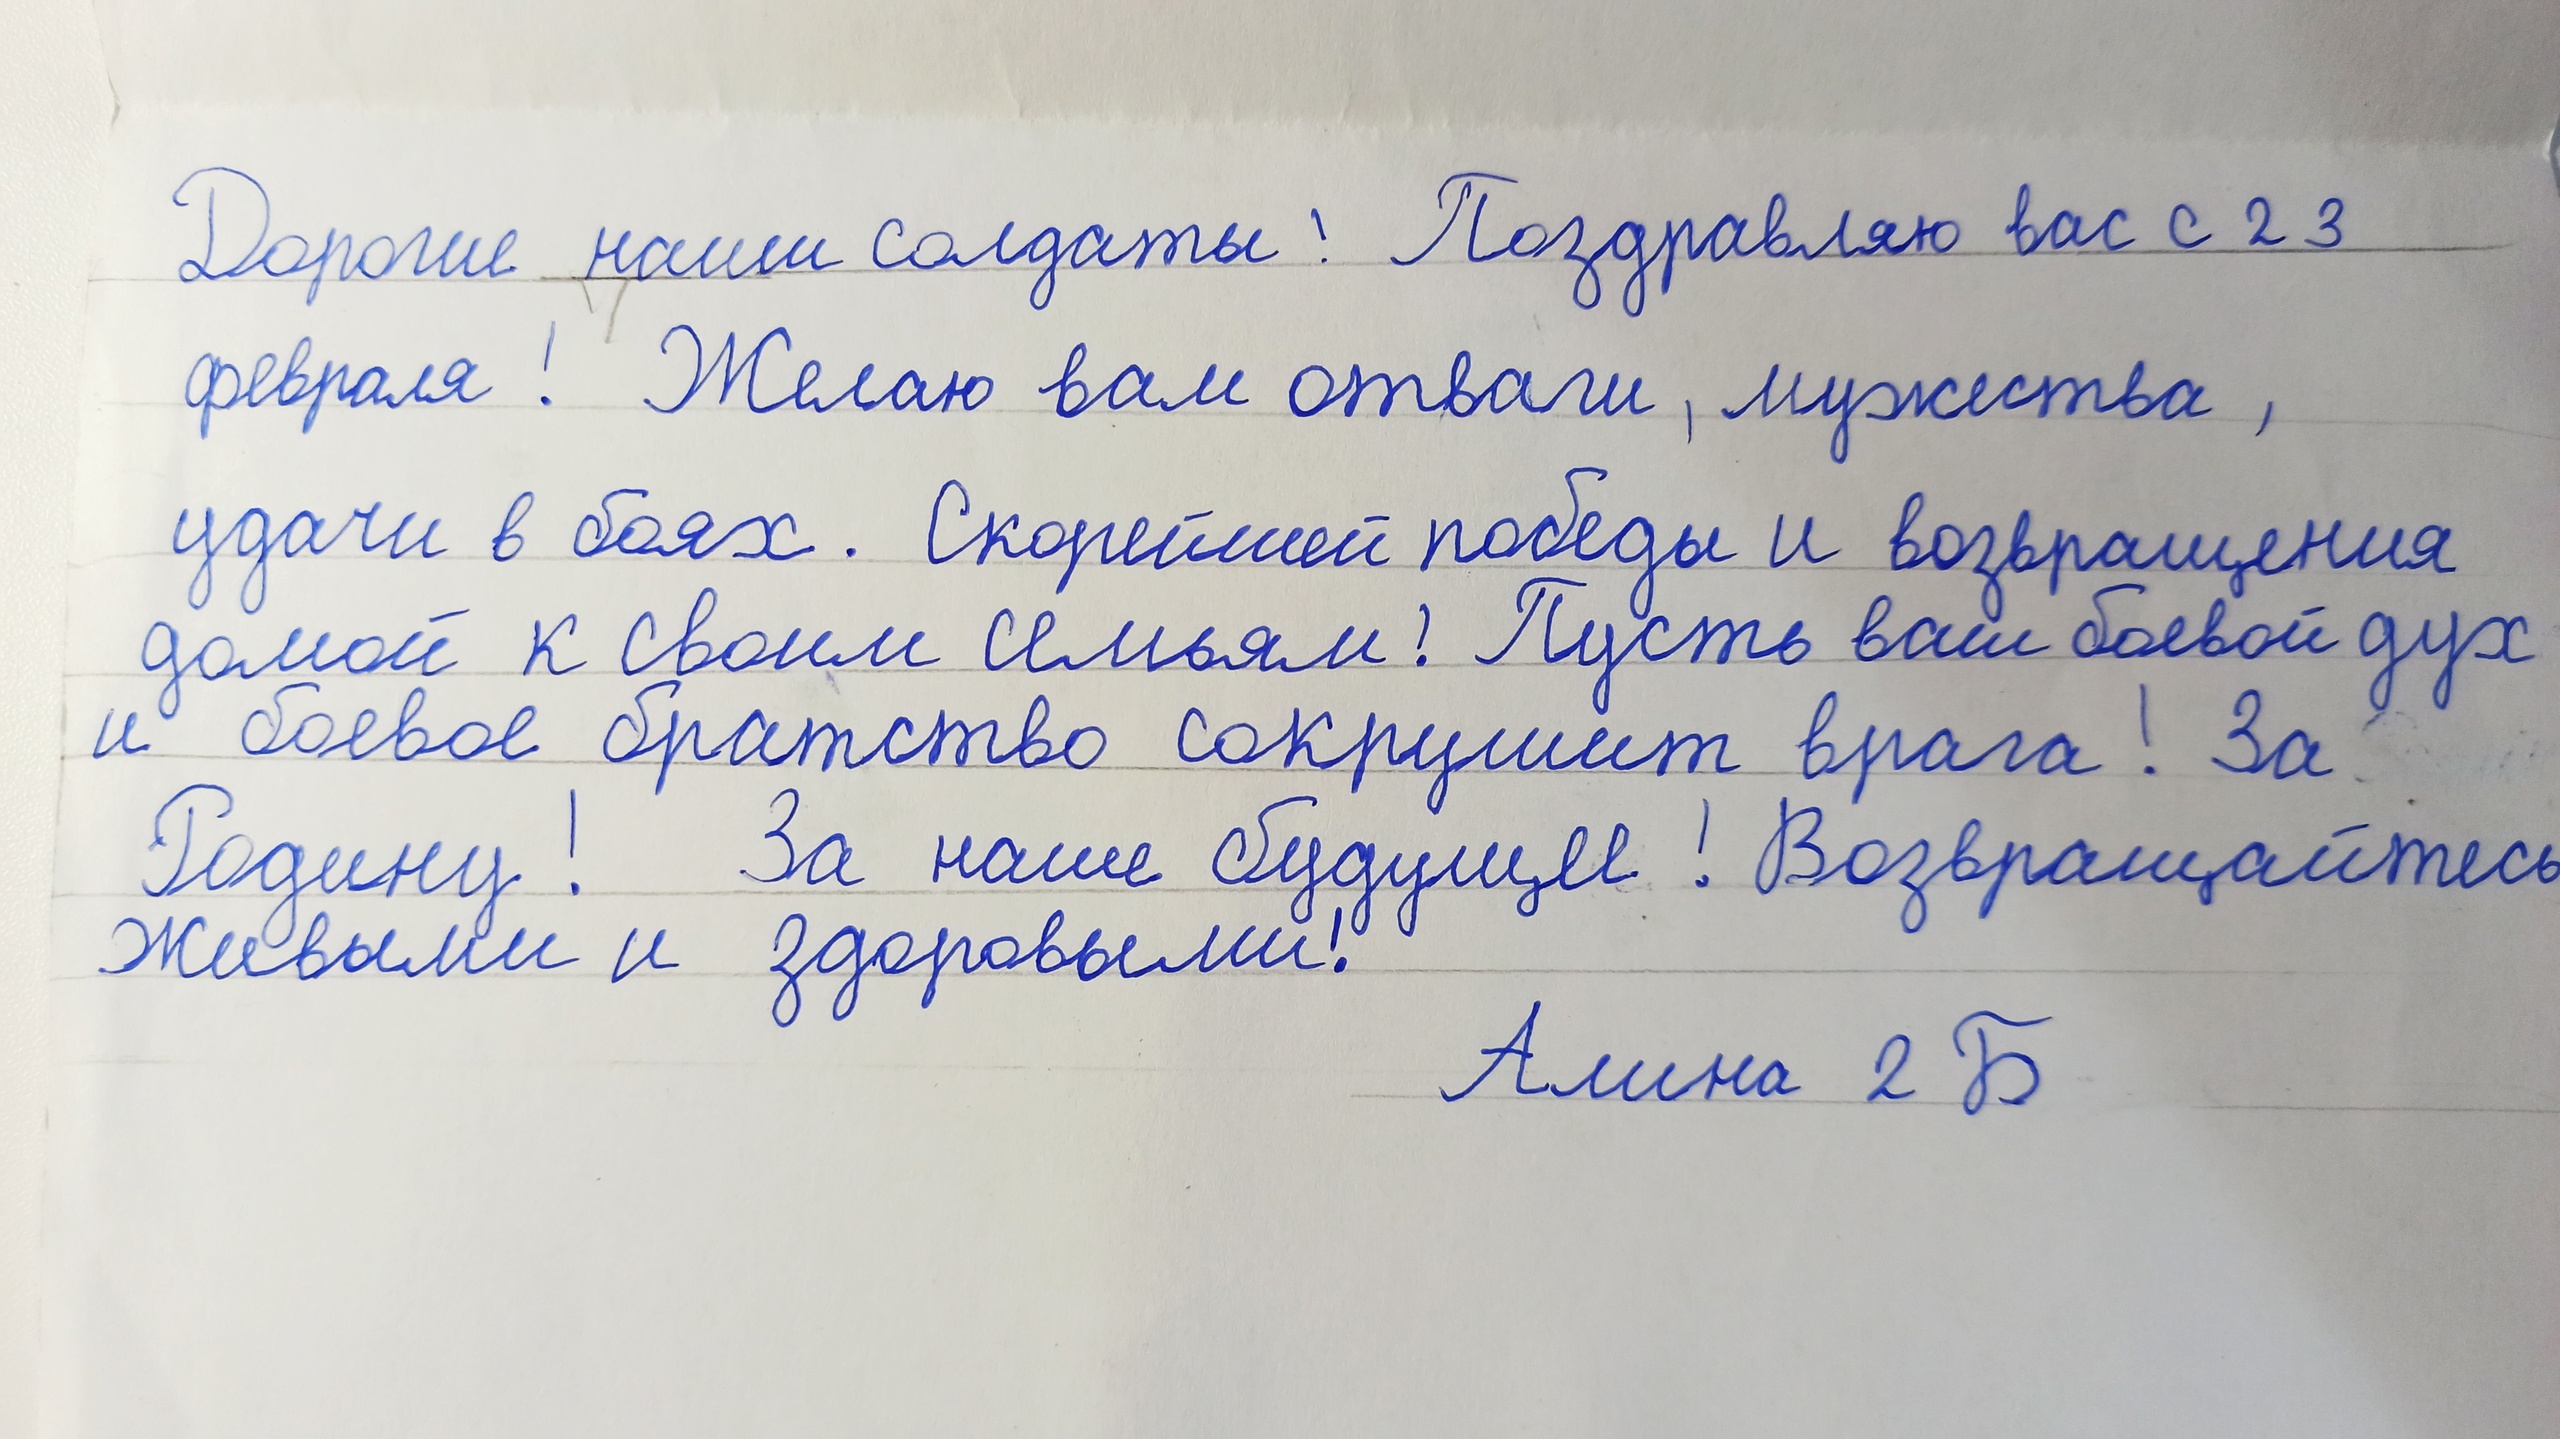 Дорогие наши солдаты! Поздравляю вас с 23
февраля! Желаю вам отваги, мужества,
удачи в боях. Скорейшей победы и возвращения
домой к своим семьям! Пусть ваш боевой дух
и боевое братство сокрушит врага! За
Родину! За наше будущее! Возвращайтесь
живыми и здоровыми!
Алина 2 Б